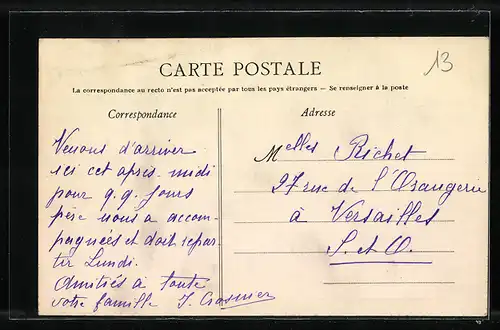 13
CARTE POSTALE
La correspondance au recto n'est pas acceptée par tous les pays étrangers — Se renseigner à la poste
Correspondance
Adresse
Venons d'arriver
ici cet après-midi
pour q.q. jours
père nous a accom-
pagnées et doit repar-
tir Lundi.
Amitiés à toute
votre famille J. Crosnier
Melles Richet
27 rue de l'Orangerie
à Versailles
S. et O.